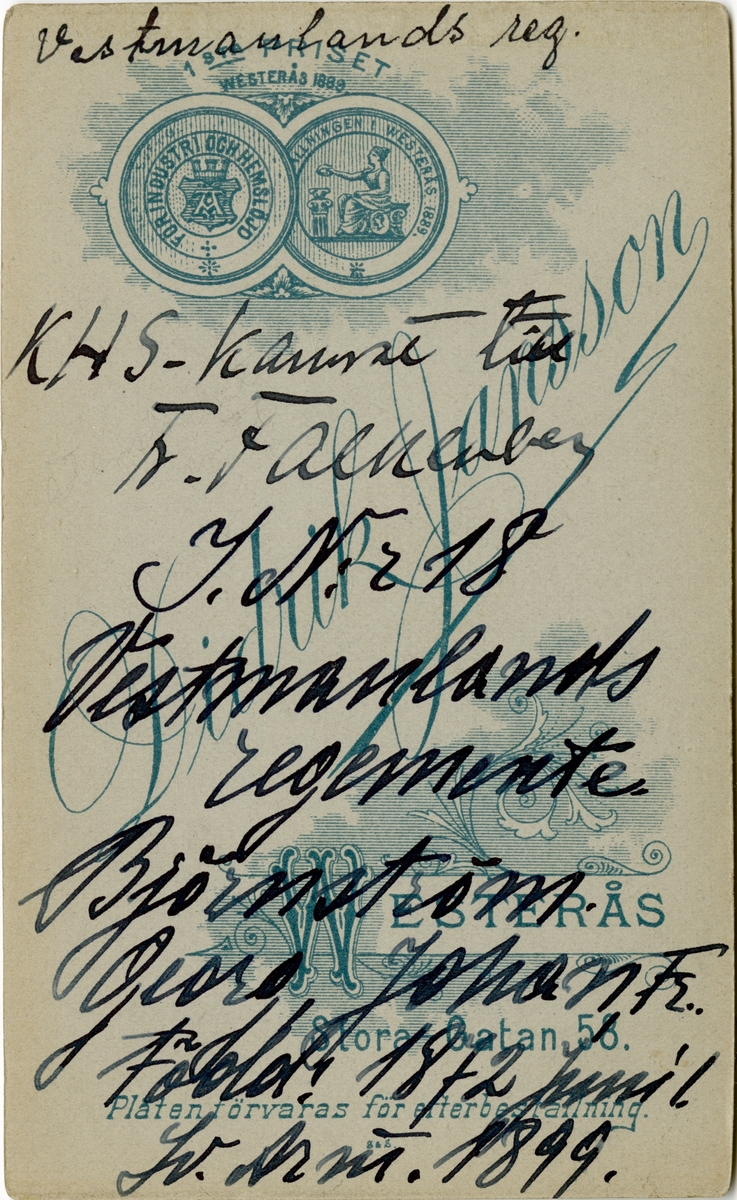 Vestmanlands reg.
1sta PRISET
WESTERÅS 1889
FÖR INDUSTRI OCH HEMSLÖJD
ÄLLNINGEN I WESTERÅS 1889.
KHS-kamrat till
Fr. Falkenberg
Didrik Jansson
I. N:r 18
Vestmanlands
regemente.
Björnström.
WESTERÅS
Georg, Johan Fr.
Stora Gatan 58.
Född: 1872 juni
Plåten förvaras för efterbeställning.
Sv. Arm. 1899.